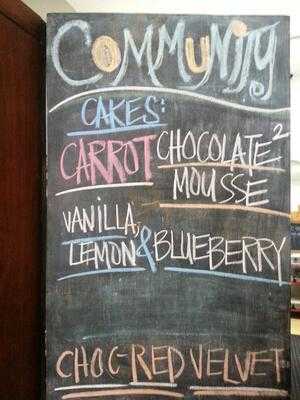 COMMUNITY
CAKES:
CARROT CHOCOLATE²
MOUSSE
VANILLA,
LEMON & BLUEBERRY
CHOC-RED VELVET